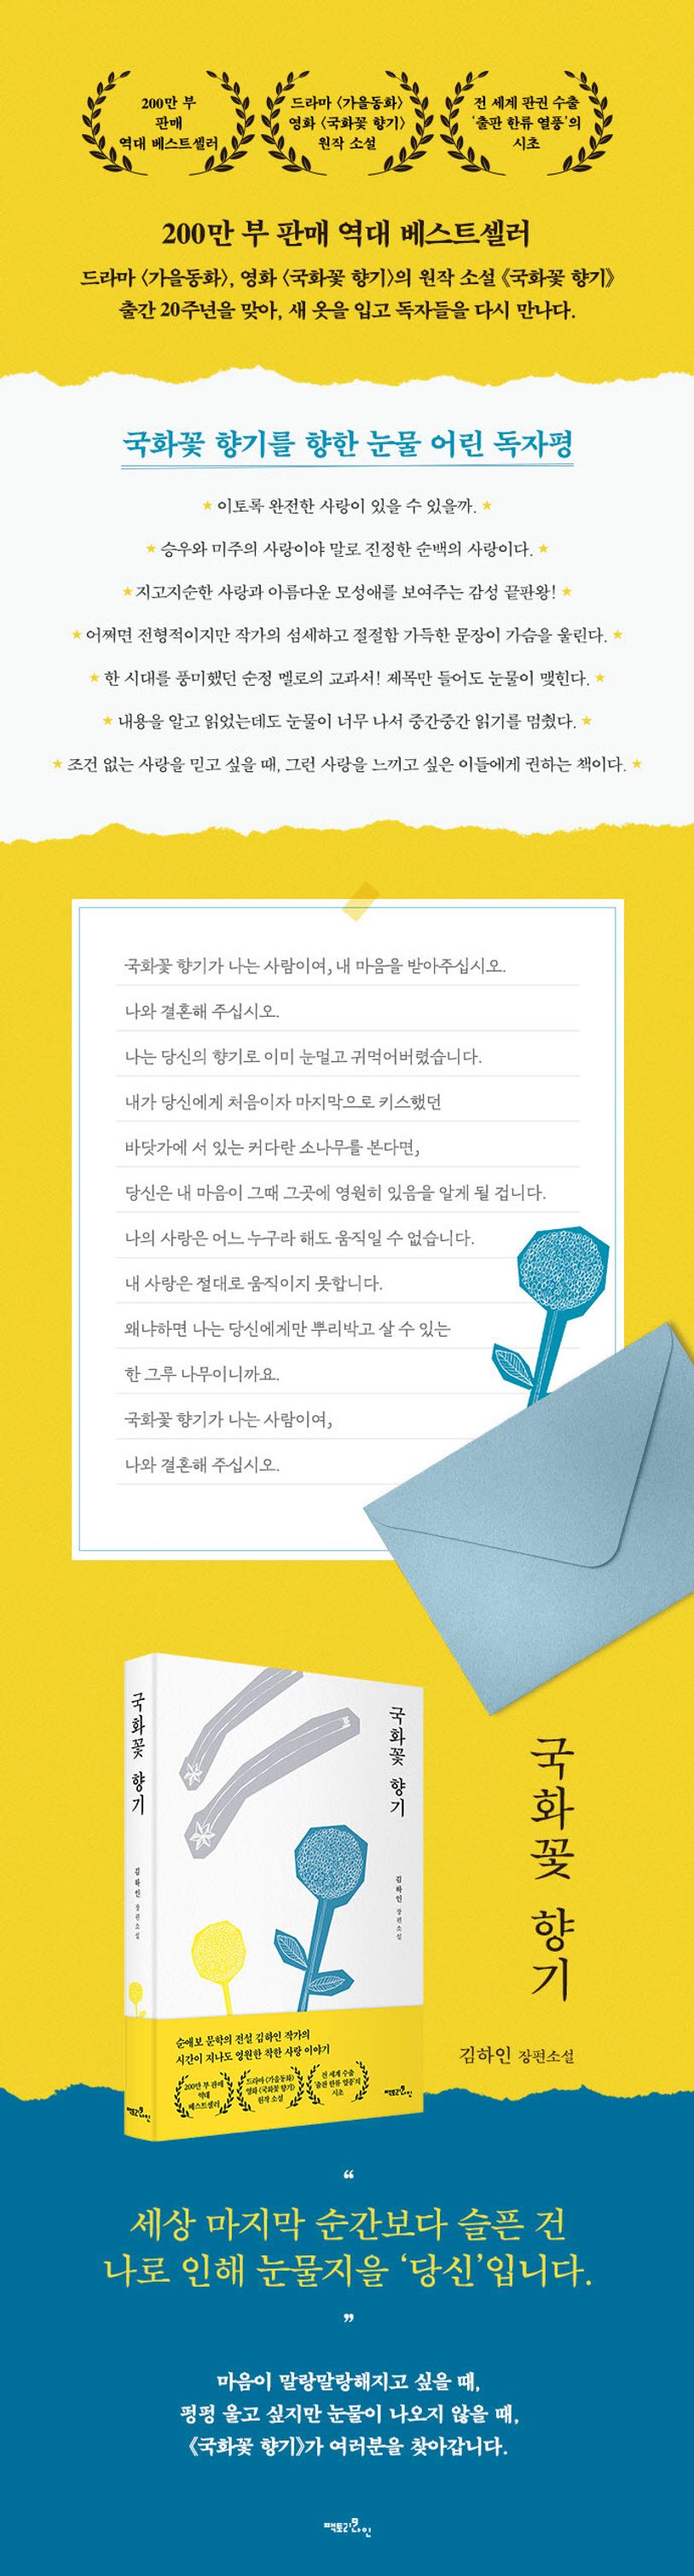 200만 부
판매
역대 베스트셀러
드라마 〈가을동화〉
영화 〈국화꽃 향기〉
원작 소설
전 세계 판권 수출
‘출판 한류 열풍’의
시초
200만 부 판매 역대 베스트셀러
드라마 〈가을동화〉, 영화 〈국화꽃 향기〉의 원작 소설 《국화꽃 향기》
출간 20주년을 맞아, 새 옷을 입고 독자들을 다시 만나다.
국화꽃 향기를 향한 눈물 어린 독자평
★ 이토록 완전한 사랑이 있을 수 있을까. ★
★ 승우와 미주의 사랑이야 말로 진정한 순백의 사랑이다. ★
★ 지고지순한 사랑과 아름다운 모성애를 보여주는 감성 끝판왕! ★
★ 어쩌면 전형적이지만 작가의 섬세하고 절절함 가득한 문장이 가슴을 울린다. ★
★ 한 시대를 풍미했던 순정 멜로의 교과서! 제목만 들어도 눈물이 맺힌다. ★
★ 내용을 알고 읽었는데도 눈물이 너무 나서 중간중간 읽기를 멈췄다. ★
★ 조건 없는 사랑을 믿고 싶을 때, 그런 사랑을 느끼고 싶은 이들에게 권하는 책이다. ★
국화꽃 향기가 나는 사람이여, 내 마음을 받아주십시오.
나와 결혼해 주십시오.
나는 당신의 향기로 이미 눈멀고 귀먹어버렸습니다.
내가 당신에게 처음이자 마지막으로 키스했던
바닷가에 서 있는 커다란 소나무를 본다면,
당신은 내 마음이 그때 그곳에 영원히 있음을 알게 될 겁니다.
나의 사랑은 어느 누구라 해도 움직일 수 없습니다.
내 사랑은 절대로 움직이지 못합니다.
왜냐하면 나는 당신에게만 뿌리박고 살 수 있는
한 그루 나무이니까요.
국화꽃 향기가 나는 사람이여,
나와 결혼해 주십시오.
국화꽃 향기
김하인 장편소설
국화꽃 향기
김하인 장편소설
순애보 문학의 전설 김하인 작가의
시간이 지나도 영원한 착한 사랑 이야기
200만 부 판매
역대
베스트셀러
드라마 〈가을동화〉
영화 〈국화꽃 향기〉
원작 소설
전 세계 수출
‘출판 한류 열풍’의
시초
팩토리나인
팩토리나인
국화꽃 향기
김하인 장편소설
“
세상 마지막 순간보다 슬픈 건
나로 인해 눈물지을 ‘당신’입니다.
”
마음이 말랑말랑해지고 싶을 때,
펑펑 울고 싶지만 눈물이 나오지 않을 때,
《국화꽃 향기》가 여러분을 찾아갑니다.
팩토리나인